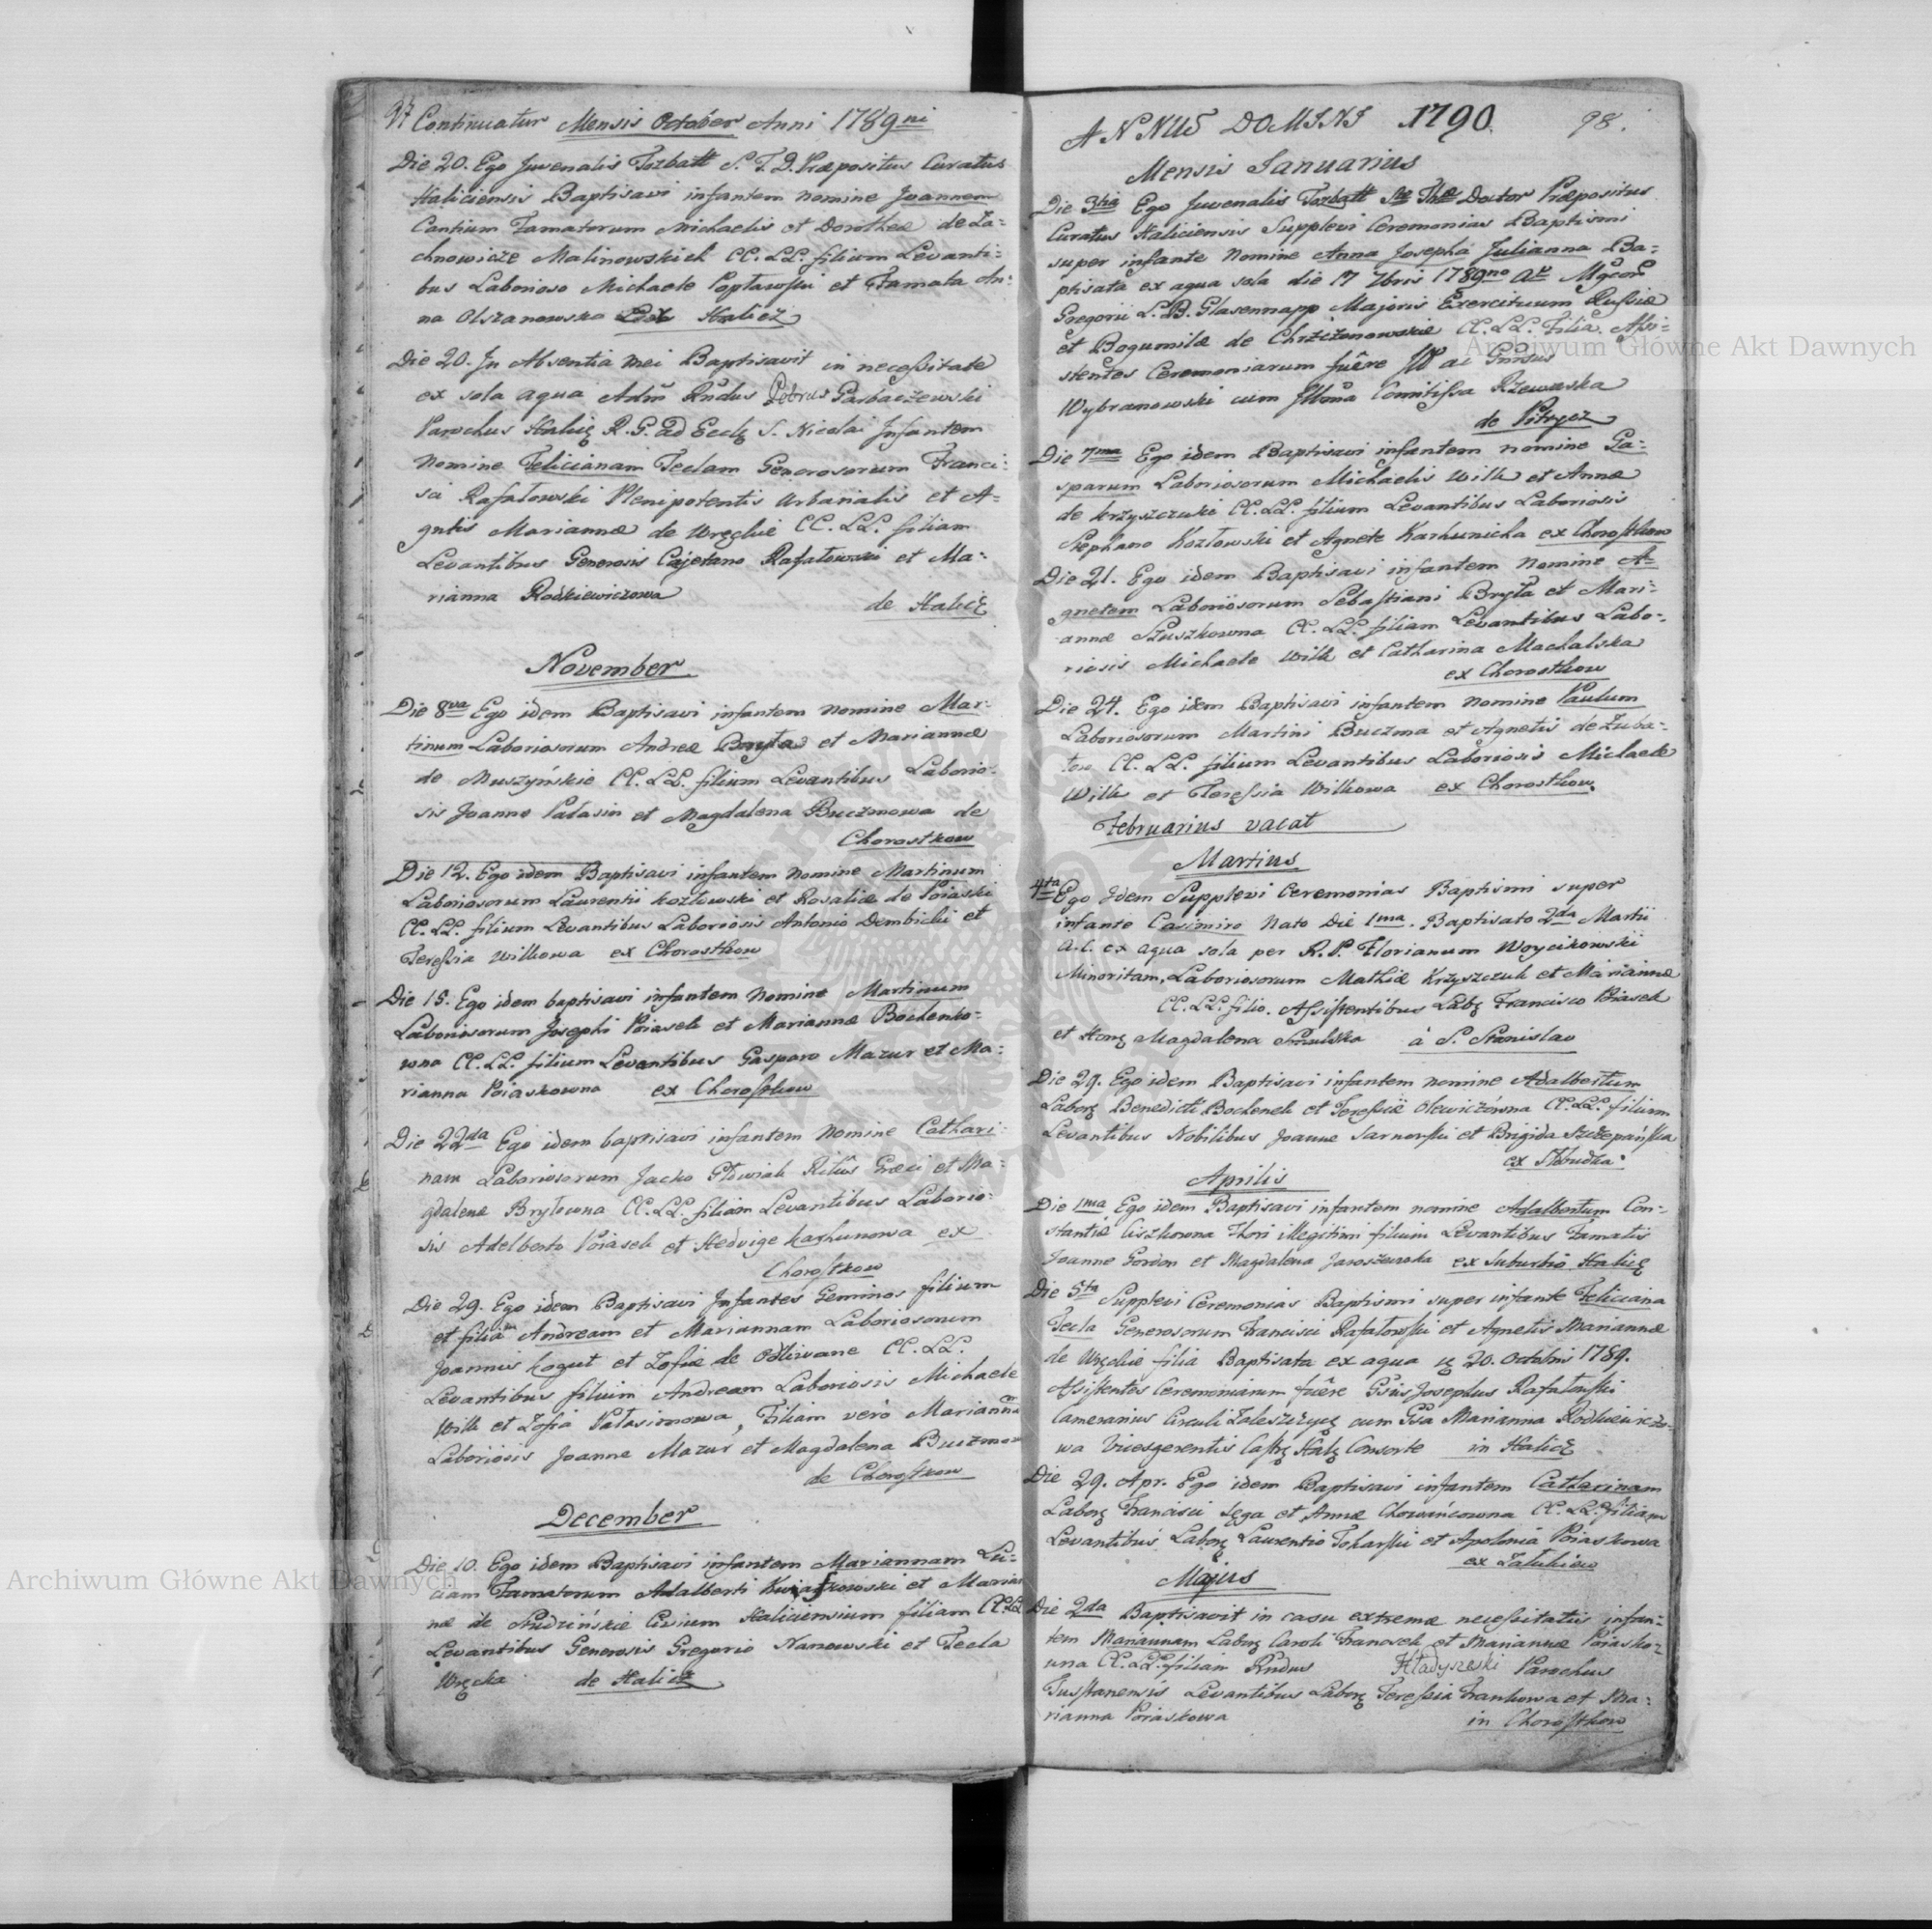 97 Continuatur Mensis October Anni 1789ni
Die 20. Ego Juvenalis Torbatt S. T. D. Præpositus Curatus
Haliciensis Baptisavi infantem nomine Joannem
Cantium Famatorum Michaelis et Dorotheæ de Za=
chnowicze Malinowskich CC. LL. filium Levanti=
bus Laborioso Michaele Popławski et Famata An=
na Olszanowska Halicz
Die 20. In Absentia mei Baptisavit in neceßitate
ex sola aqua Adm Rndus Petrus Garbaczewski
Parochus Halicz R. G. ad Eccl S. Nicolai Infantem
Nomine Felicianam Teclam Generosorum Franci=
sci Rafałowski Plenipotentis Urbarialis et A=
gnetis Mariannæ de Wręckie CC. LL. filiam
Levantibus Generosis Cajetano Rafałowski et Ma=
rianna Rodkiewiczowa de Halicz
November
Die 8va Ego idem Baptisavi infantem nomine Mar=
tinum Laboriosorum Andreæ Boryta et Mariannæ
de Muszyńskie CC. LL. filium Levantibus Laborio=
sis Joanne Pałasin et Magdalena Buczmowa de
Chorostkow
Die 12. Ego idem Baptisavi infantem nomine Martinum
Laboriosorum Laurentii Kozłowski et Rosaliæ de Poiaski
CC. LL. filium Levantibus Laboriosis Antonio Dembicki et
Tereßia Wilkowa ex Chorostkow
Die 15. Ego idem baptisavi infantem Nomine Martinum
Laboriosorum Josephi Poiasek et Mariannæ Bochenko=
wna CC. LL. filium Levantibus Gasparo Mazur et Ma=
rianna Poiaskowna ex Chorostkow
Die 22da Ego idem baptisavi infantem Nomine Cathari=
nam Laboriosorum Jacko Głowiak Ritûs Græci et Ma=
gdalenæ Brytowna CC. LL. filiam Levantibus Laborio=
sis Adelberto Poiasek et Hedvige Karhunowa ex
Chorostkow
Die 29. Ego idem Baptisavi Infantes Geminos filium
et filiam Andream et Mariannam Laboriosorum
Joannis Kogut et Zofiæ de Odliwane CC. LL.
Levantibus filium Andream Laboriosis Michaele
Wilk et Zofia Pałasinowa, Filiam verò Mariannam
Laboriosis Joanne Mazur et Magdalena Buczmow
de Chorostkow
December
Die 10. Ego idem Baptisavi infantem Mariannam Lu=
ciam Famatorum Adalberti et Marian
næ de Rudzińskie Civium Haliciensium filiam CC. LL
Levantibus Generosis Gregorio Nanowski et Tecla
Wręcka de Halicz
ANNUS DOMINI 1790. 98.
Mensis Januarius
Die 3tia Ego Juvenalis Torbatt Stæ Thæ Doctor Præpositus
Curatus Haliciensis Supplevi Ceremonias Baptismi
super infante Nomine Anna Josepha Julianna Ba=
ptisata ex aqua sola die 17 7bris 1789no
Gregorii L. B. Glasennapp Majoris Exercituum Rußiæ
et Bogumilæ de Chrzczonowskie CC. LL. Filia. Aßi=
stentes Ceremoniarum fuêre Ill ac Gnrsus
Wybranowski cum Illma Comitißa Rzewuska
de Pitrycz
Die 7ma Ego idem Baptisavi infantem nomine Ga=
sparum Laboriosorum Michaelis Wilk et Annæ
de Krzyszczuki CC. LL. filium Levantibus Laboriosis
Stephano Kozłowski et Agnete Karhunicha ex Chorostkow
Die 21. Ego idem Baptisavi infantem Nomine A=
gnetem Laboriosorum Sebastiani Bryta et Mari=
annæ Szuszkowna CC. LL. filiam Levantibus Labo=
riosis Michaele Wilk et Catharina Machalska
ex Chorostkow
Die 24. Ego idem Baptisavi infantem nomine Paulum
Laboriosorum Martini Buczma et Agnetis de Zuba=
ten CC. LL. filium Levantibus Laboriosis Michaele
Wilk et Tereßia Wilkowa ex Chorostkow.
Februarius vacat
Martius
4ta Ego Idem Supplevi Ceremonias Baptismi super
infante Casimiro Nato Die 1ma. Baptisato 2da Martii
a. c. ex aqua sola per R. P. Florianum Woycikowski
Minoritam, Laboriosorum Mathiæ Krzyszczuk et Mariannæ
CC. LL. filio. Aßistentibus Labz Francisco Poiasek
et Honz Magdalena à S. Stanislao
Die 29. Ego idem Baptisavi infantem nomine Adalbertum
Laborz Benedicti Bochenek et Tereßiæ Olewiczówna CC. LL. filium
Levantibus Nobilibus Joanne Sarnowski et Brigida Szczepańska
ex Skrudza.
Aprilis
Die 1ma Ego idem Baptisavi infantem nomine Adalbertum Con=
stantiæ Ciszkowna Thori illegitimi filium Levantibus Famatis
Joanne Gordon et Magdalena Jaroszewska ex Suburbio Halicz
Die 5ta Supplevi Ceremonias Baptismi super infante Feliciana
Tecla Generosorum Francisci Rafałowski et Agnetis Mariannæ
de Wręckie filia Baptisata ex aqua 20. Octobris 1789.
Aßistentes Ceremoniarum fuêre Gsus Josephus Rafałowski
Camerarius Circuli Zaleszczyc cum Gsa Marianna Rodkiewiczo=
wa Vicesgerentis Castrz Halz Consorte in Halicz
Die 29. Apr. Ego idem Baptisavi infantem Catharinam
Laborz Francisci Sęga et Annæ Chowańcowna CC. LL. filiam
Levantibus Laborz Laurentio Tokarski et Apolonia Poiaskowa
ex Załukiew
Majus
Die 2da Baptisavit in casu extremæ neceßitatis infan=
tem Mariannam Laborz Caroli Franosek et Mariannæ Poiasko=
wna CC. LL. filiam Rndus Hładyszeski Parochus
Tustanensis Levantibus Laborz Tereßia Frankowa et Ma=
rianna Poiaskowa in Chorostkow
Archiwum Główne Akt Dawnych
Archiwum Główne Akt Dawnych